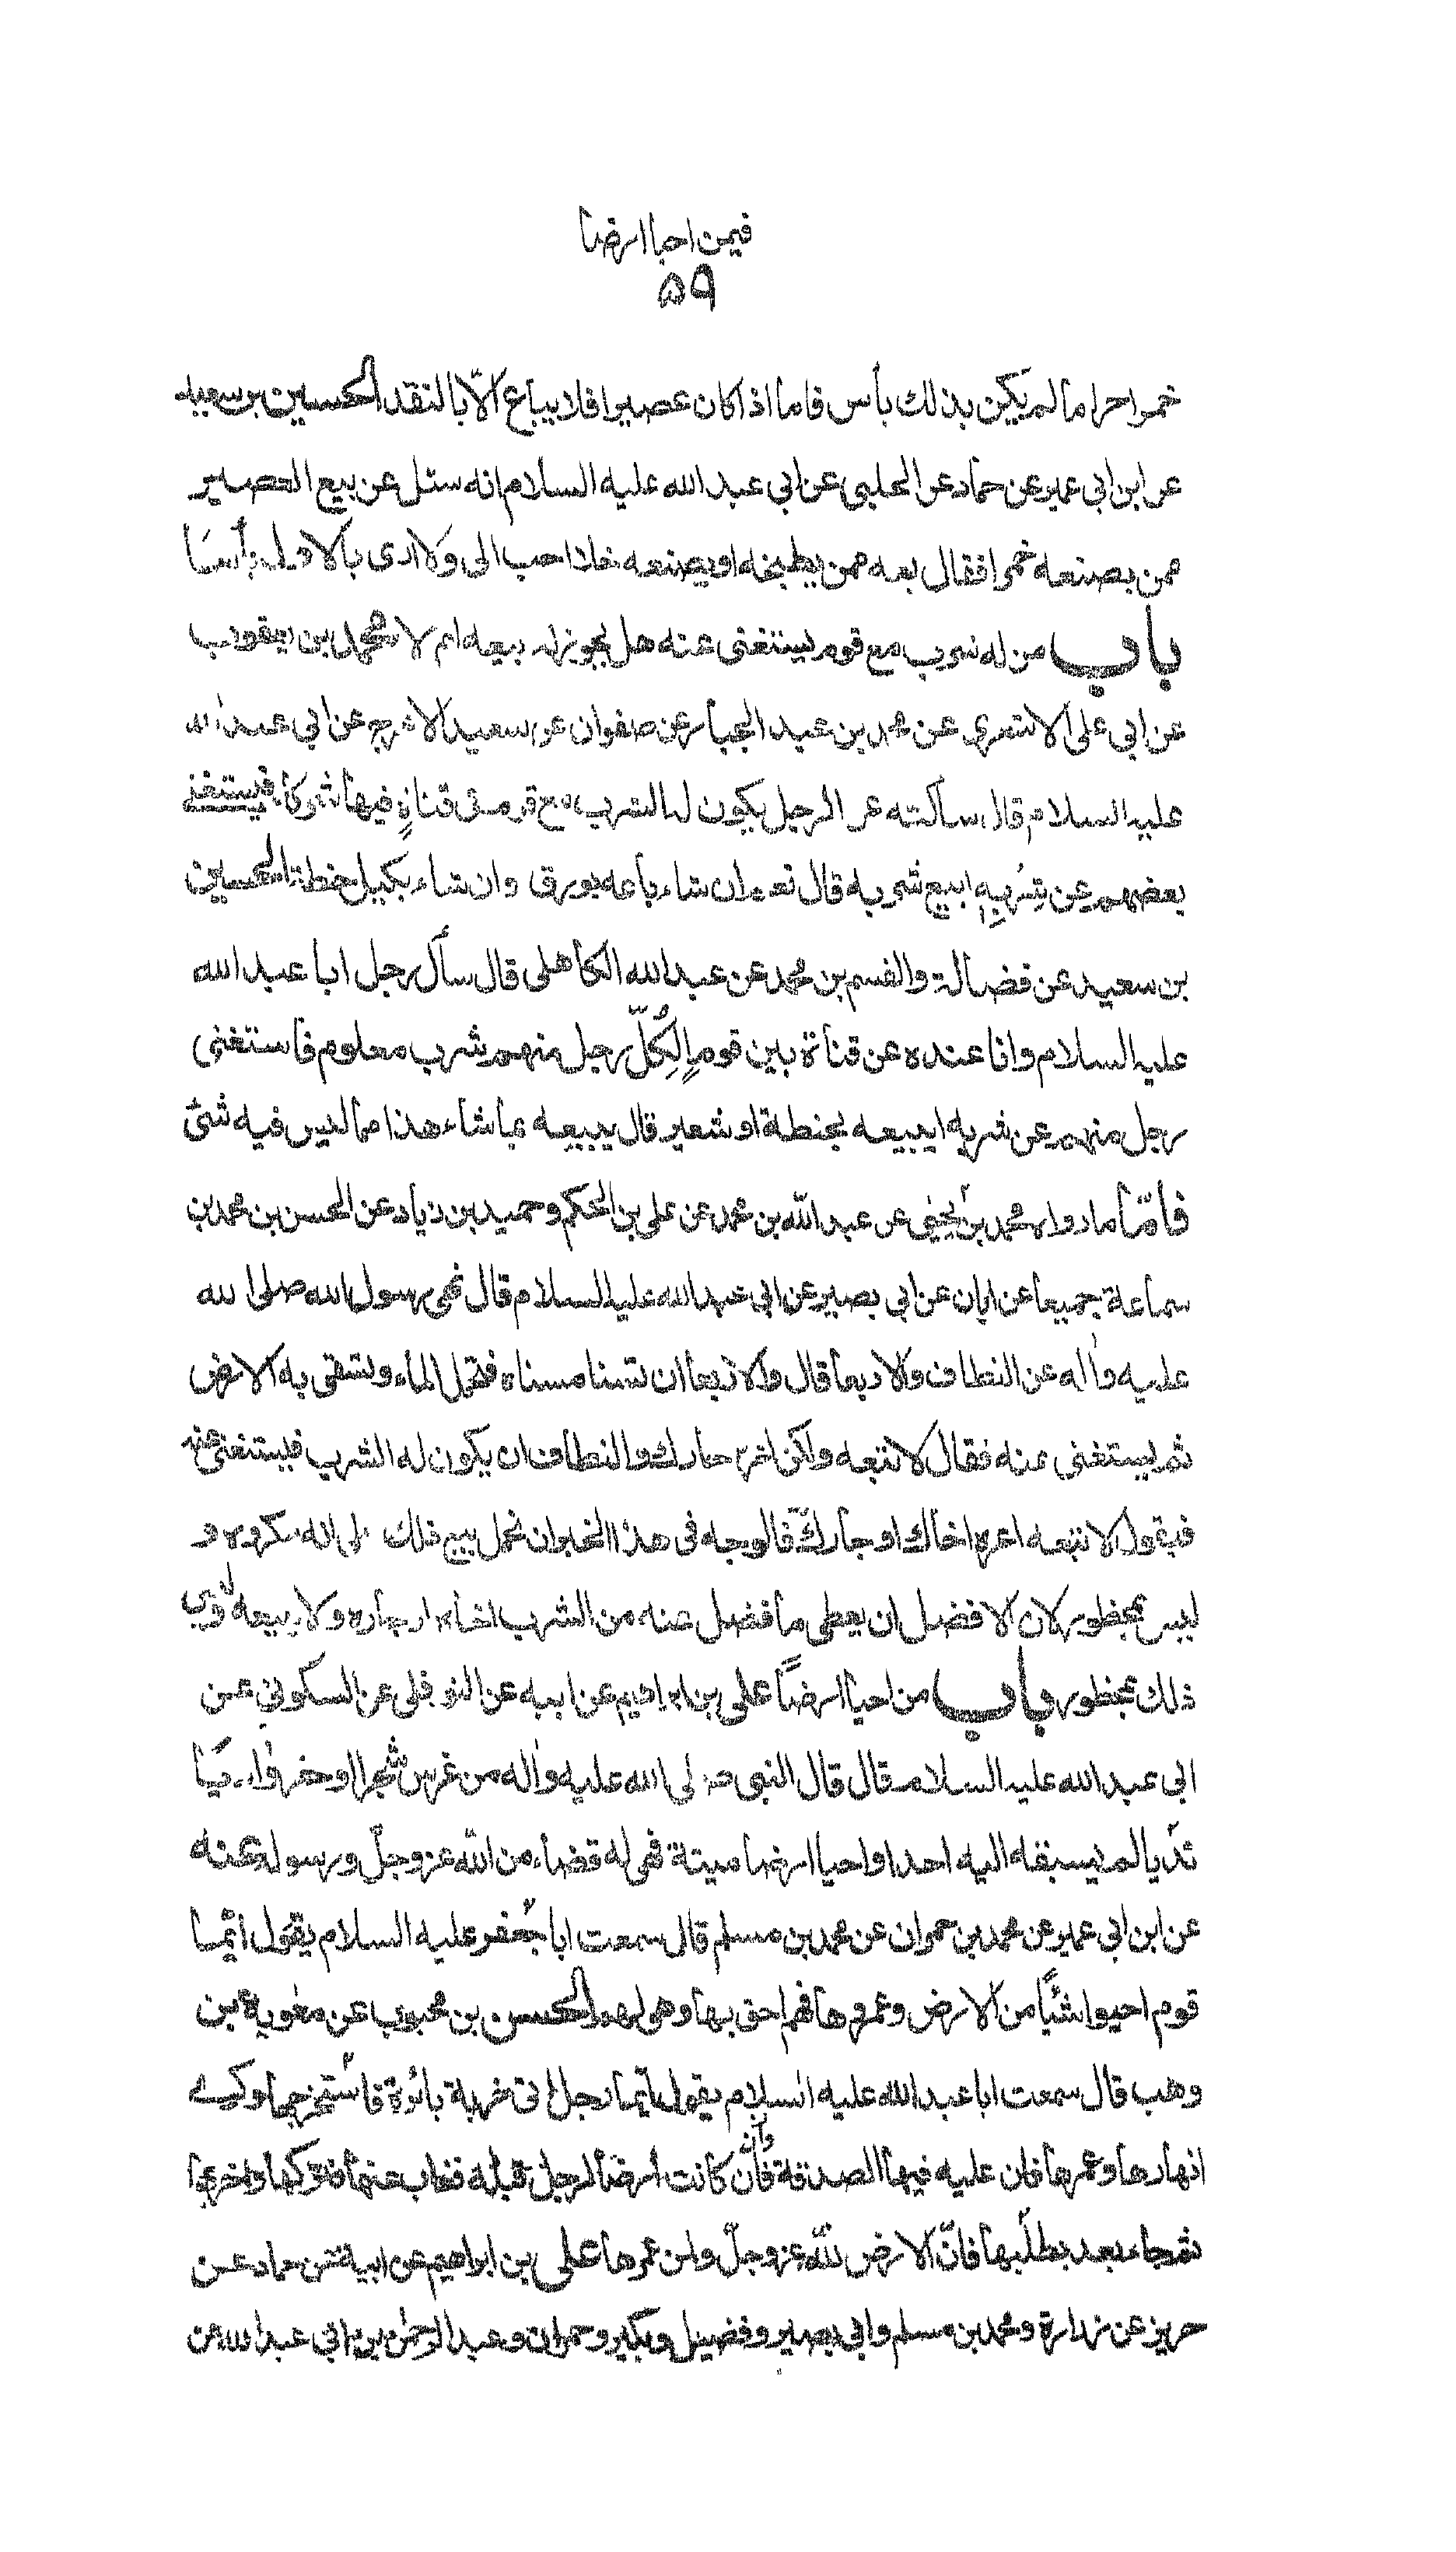 فيمن احيا ارضا
۵۹
خمرا حراما لم يكن بذلك بأس فاما اذا كان عصيرا فلا يباع الّا بالنقد الحسين بن سعيد
عن ابن ابي عمير عن حماد عن الحلبي عن ابي عبد الله عليه السلام انه سئل عن بيع العصير
ممن يصنعه خمرا فقال بعه ممن يطبخه او يصنعه خلا احب الى ولا ارى بالاول بأسا
باب من له شرب مع قوم يستغنى عنه هل يجوز له بيعه ام لا محمد بن يعقوب
عن ابي على الاشعري عن محمد بن عبد الجبار عن صفوان عن سعيد الاعرج عن ابي عبد الله
عليه السلام قال سألته عن الرجل يكون له الشرب مع قوم فى قناةٍ فيها شركاء فيستغنى
بعضهم عن شِربِهِ ايبيع شربه قال نعم ان شاء باعه بورق وان شاء بكيل حنطة الحسين
بن سعيد عن فضالة والقسم بن محمد عن عبد الله الكاهلى قال سأل رجل ابا عبد الله
عليه السلام وانا عنده عن قناة بين قومٍ لِكُلّ رجل منهم شرب معلوم فاستغنى
رجل منهم عن شربه ايبيعه بحنطة او شعير قال يبيعه بما شاء هذا مما ليس فيه شئ
فأمّا ما رواه محمد بن يحيى عن عبد الله بن محمد عن على بن الحكم وحميد بن زياد عن الحسن بن محمد بن
سماعة جميعا عن ابان عن ابي بصير عن ابى عبد الله عليه السلام قال نهى رسول الله صلى الله
عليه واله عن النطاف والاربعا قال والاربعا ان تسنا مسناه فتحمل الماء وتسقى به الارض
ثم يستغنى عنه فقال لا تبعه ولكن اعره جارك والنطاف ان يكون له الشرب فيستغنى عنه
فيقول لا تبعه اعره اخاك او جارك فالوجه فى هذا الخبر ان نحمل بيع ذلك على انه مكروه و
ليس بمحظور لان الافضل ان يعطى ما فضل عنه من الشرب اخاه او جاره ولا يبيعه وليس
ذلك بمحظور باب من احيا ارضاً على بن ابراهيم عن ابيه عن النوفلى عن السكوني عن
ابى عبد الله عليه السلام قال قال النبى صلى الله عليه واله من غرس شجرا او حفر واديا
بَديا لم يسبقه اليه احد او احيا ارضا ميتة فهى له قضاء من الله عز وجلّ ورسوله عنه
عن ابن ابي عمير عن محمد بن حمران عن محمد بن مسلم قال سمعت ابا جعفر عليه السلام يقول ايّما
قوم احيوا شيئاً من الارض وعمروها فهم احق بها وهى لهم الحسن بن محبوب عن معوية بن
وهب قال سمعت ابا عبد الله عليه السلام يقول ايّما رجل اتى خربة بائرة فاستخرجها وكرى
انهارها وعمرها فان عليه فيها الصدقة فان وان كانت ارضا لرجل قبله فغاب عنها فتركها واخربها
ثم جاء بعد يطلبها فانّ الارض لله عز وجلّ ولمن عمرها على بن ابراهيم عن ابيه عن حماد عن
حريز عن زرارة ومحمد بن مسلم وابي بصير وفضيل وبكير وحمران وعبد الرحمن بن ابى عبد الله عن